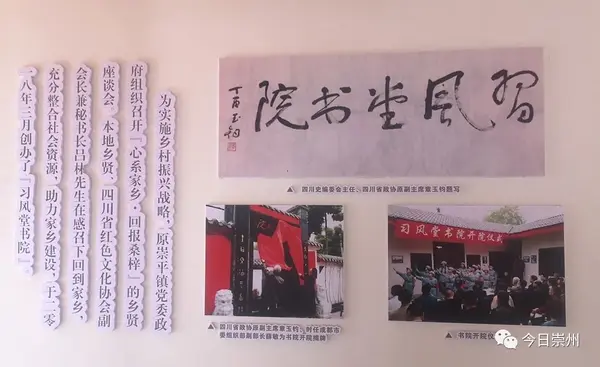 为实施乡村振兴战略，原崇平镇党委政
府组织召开「心系家乡·回报桑梓」的乡贤
座谈会。本地乡贤、四川省红色文化协会副
会长兼秘书长吕林先生在感召下回到家乡，
充分整合社会资源，助力家乡建设，于二零
一八年三月创办了「习风堂书院」。
習风堂书院
丁酉 玉钧
四川史编委会主任、四川省政协原副主席章玉钧题写
四川省政协原副主席章玉钧、时任成都市
委组织部副部长薛敏为书院开院揭牌
习风堂书院开院仪式
书院开院仪
今日崇州